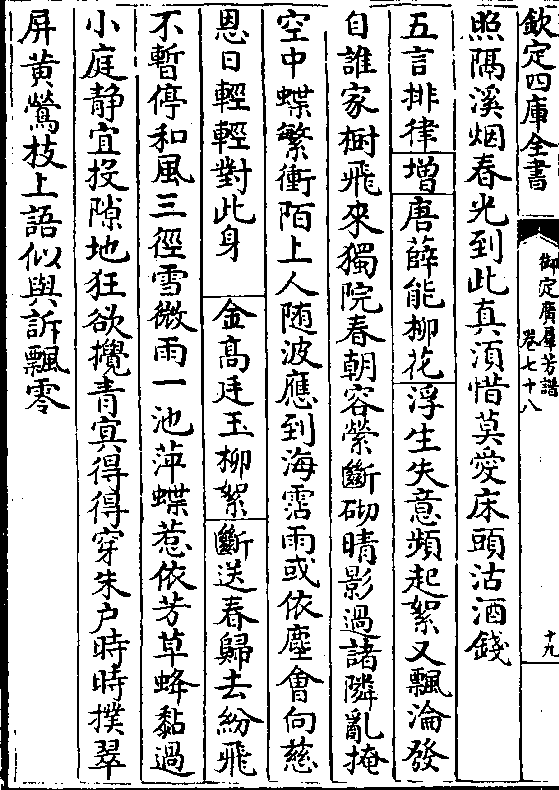 欽定四庫全書
御定廣羣芳譜
卷七十八
十九
照隔溪烟春光到此真須惜莫愛床頭沽酒錢
五言排律增唐薛能柳花浮生失意頻起絮又飄淪發
自誰家樹飛來獨院春朝容縈斷砌晴影過諸隣亂掩
空中蝶繁衝陌上人随波應到海霑雨或依塵會向慈
恩日輕輕對此身　金髙廷玉柳絮斷送春歸去紛飛
不暫停和風三徑雪微雨一池萍蝶惹依芳草蜂黏過
小庭静宜投隙地狂欲攪青㝠得得穿朱户時時撲翠
屏黄鶯枝上語似與訴飄零